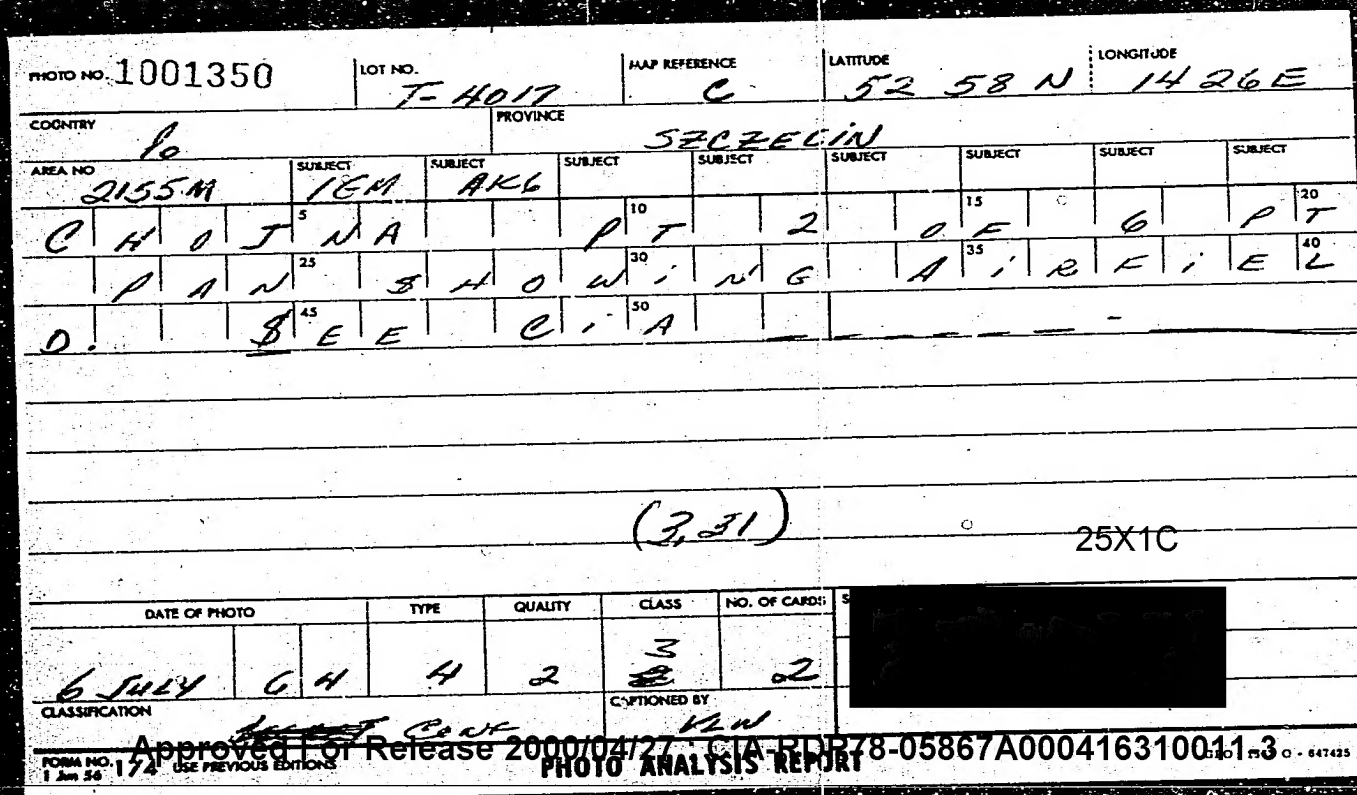 PHOTO NO. 1001350 LOT NO. T-4017 MAP REFERENCE C LATITUDE 52 58 N LONGITUDE 14 26 E
COUNTRY Po PROVINCE SZCZECIN
AREA NO 2155M SUBJECT IEM SUBJECT AK6 SUBJECT SUBJECT SUBJECT SUBJECT SUBJECT SUBJECT
5 10 15 20
CHOJNA PT 2 OF 6 PT
25 30 35 40
PAN SHOWING AIRFIEL
45 50
D. SEE CIA
(3,31)
25X1C
DATE OF PHOTO TYPE QUALITY CLASS NO. OF CARDS S
3
6 JULY 64 4 2 2 2
CLASSIFICATION CONF CAPTIONED BY VLW
Approved For Release 2000/04/27 : CIA-RDP78-05867A000416310011-3
FORM NO. 174 USE PREVIOUS EDITIONS PHOTO ANALYSIS REPORT O - 647425
1 Jun 56